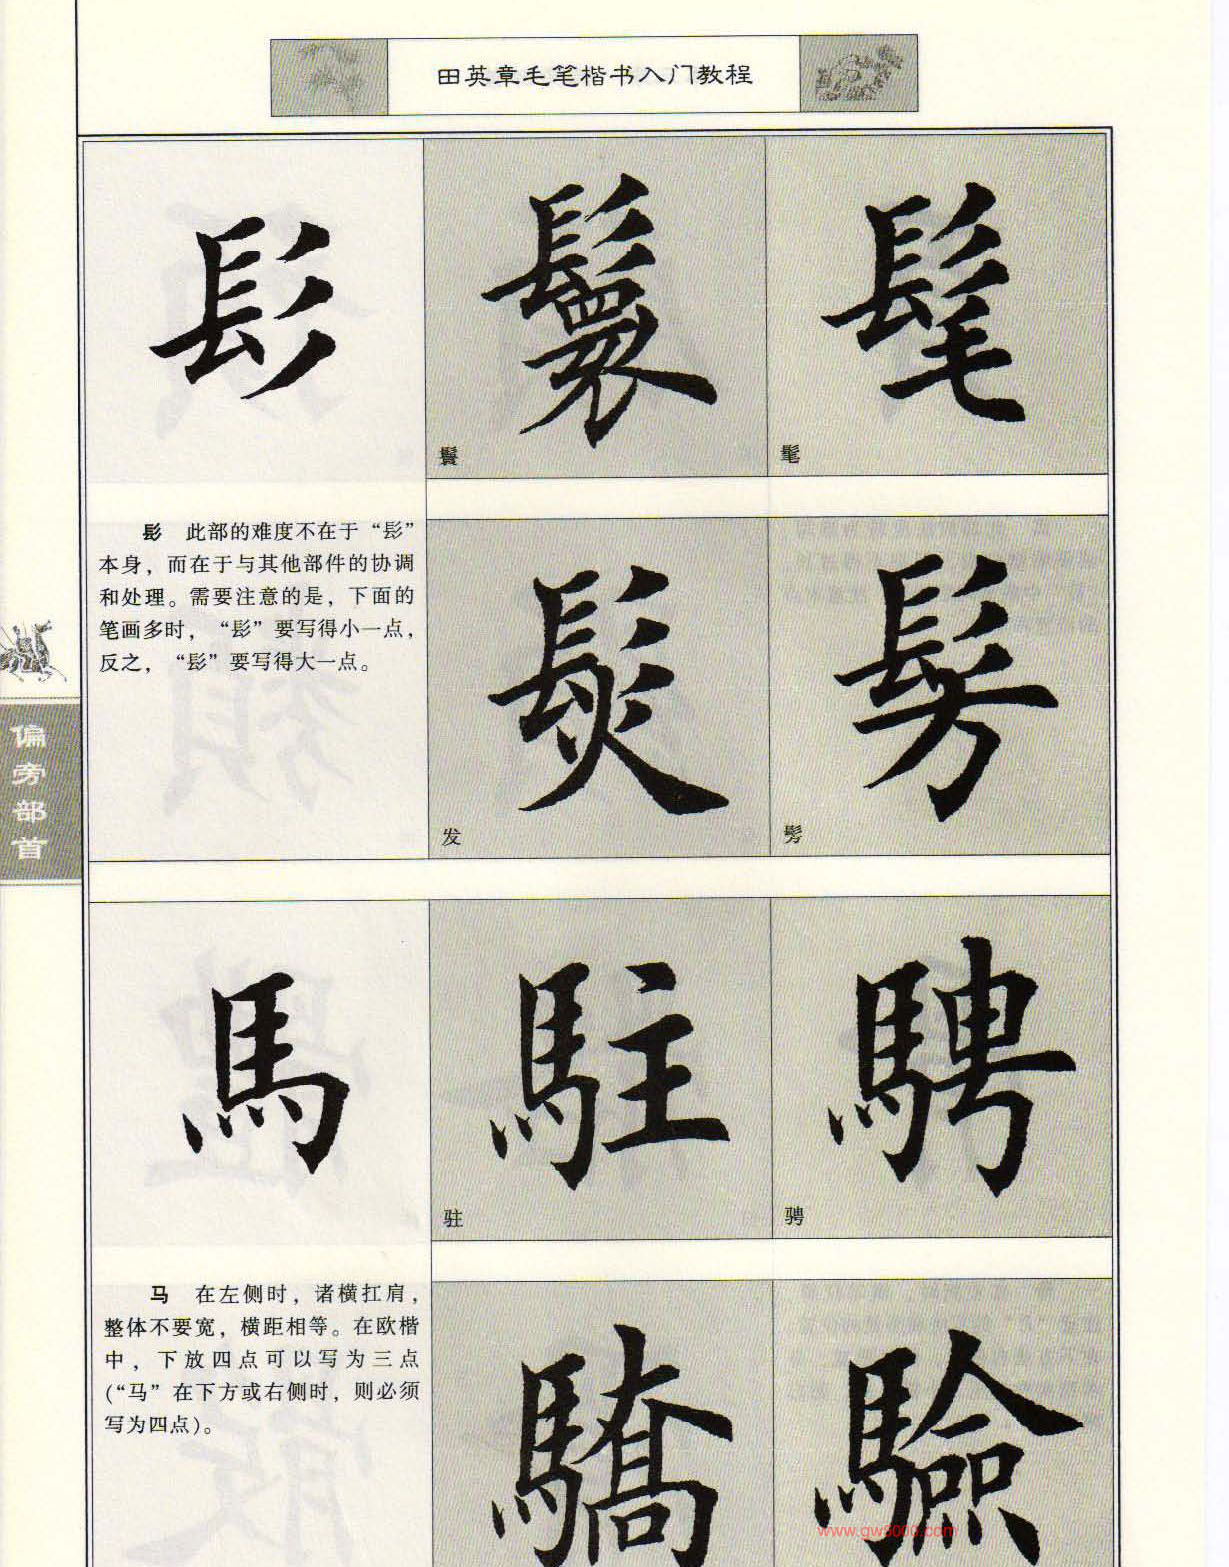 田英章毛笔楷书入门教程
髟
鬟
髦
鬟
髦
髟 此部的难度不在于“髟”
本身，而在于与其他部件的协调
和处理。需要注意的是，下面的
笔画多时，“髟”要写得小一点，
反之，“髟”要写得大一点。
髮
髣
发
髣
偏旁部首
馬
駐
騁
驻
骋
马 在左侧时，诸横扛肩，
整体不要宽，横距相等。在欧楷
中，下放四点可以写为三点
(“马”在下方或右侧时，则必须
写为四点)。
驕
驗
www.gw5000.com